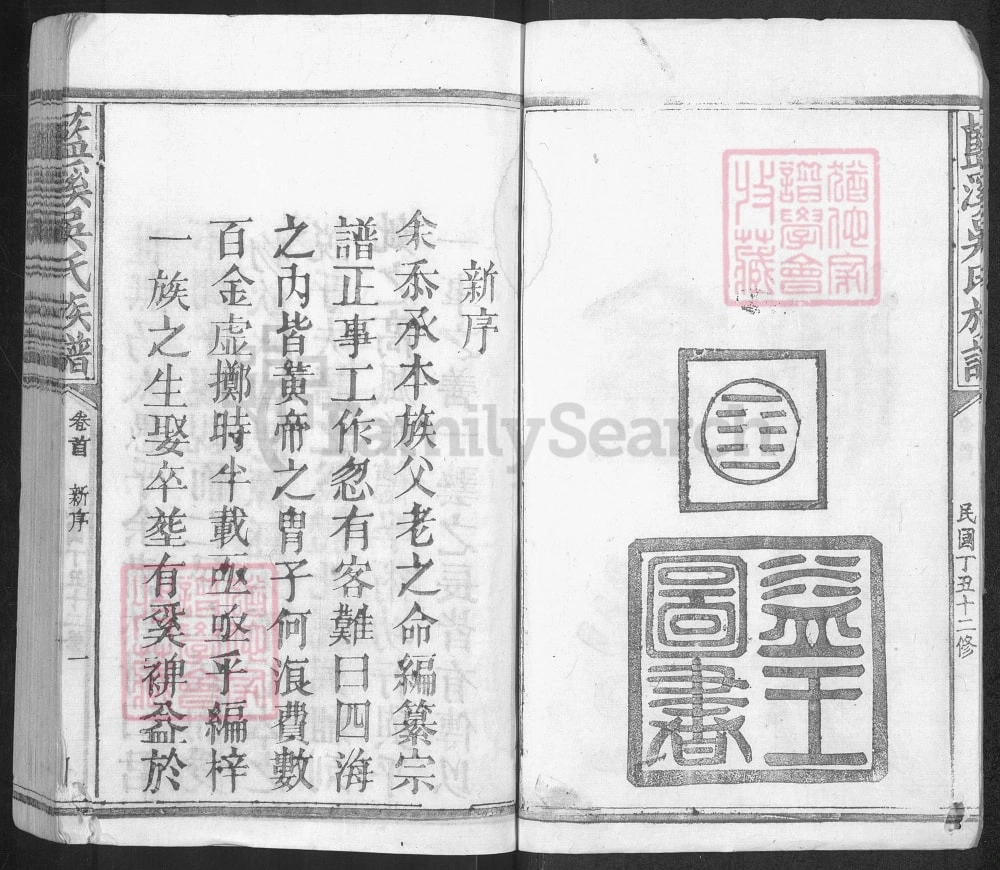 藍溪吳氏族譜
民國丁丑十二修
猶他家
譜學會
收藏
益王
圖書
新序
余忝承本族父老之命編纂宗
譜正事工作忽有客難曰四海
之内皆黃帝之胄子何浪費數
百金虛擲時半載亟亟乎編梓
一族之生娶卒塟有奚裨益於
藍溪吳氏族譜
卷首
新序
一
FamilySearch